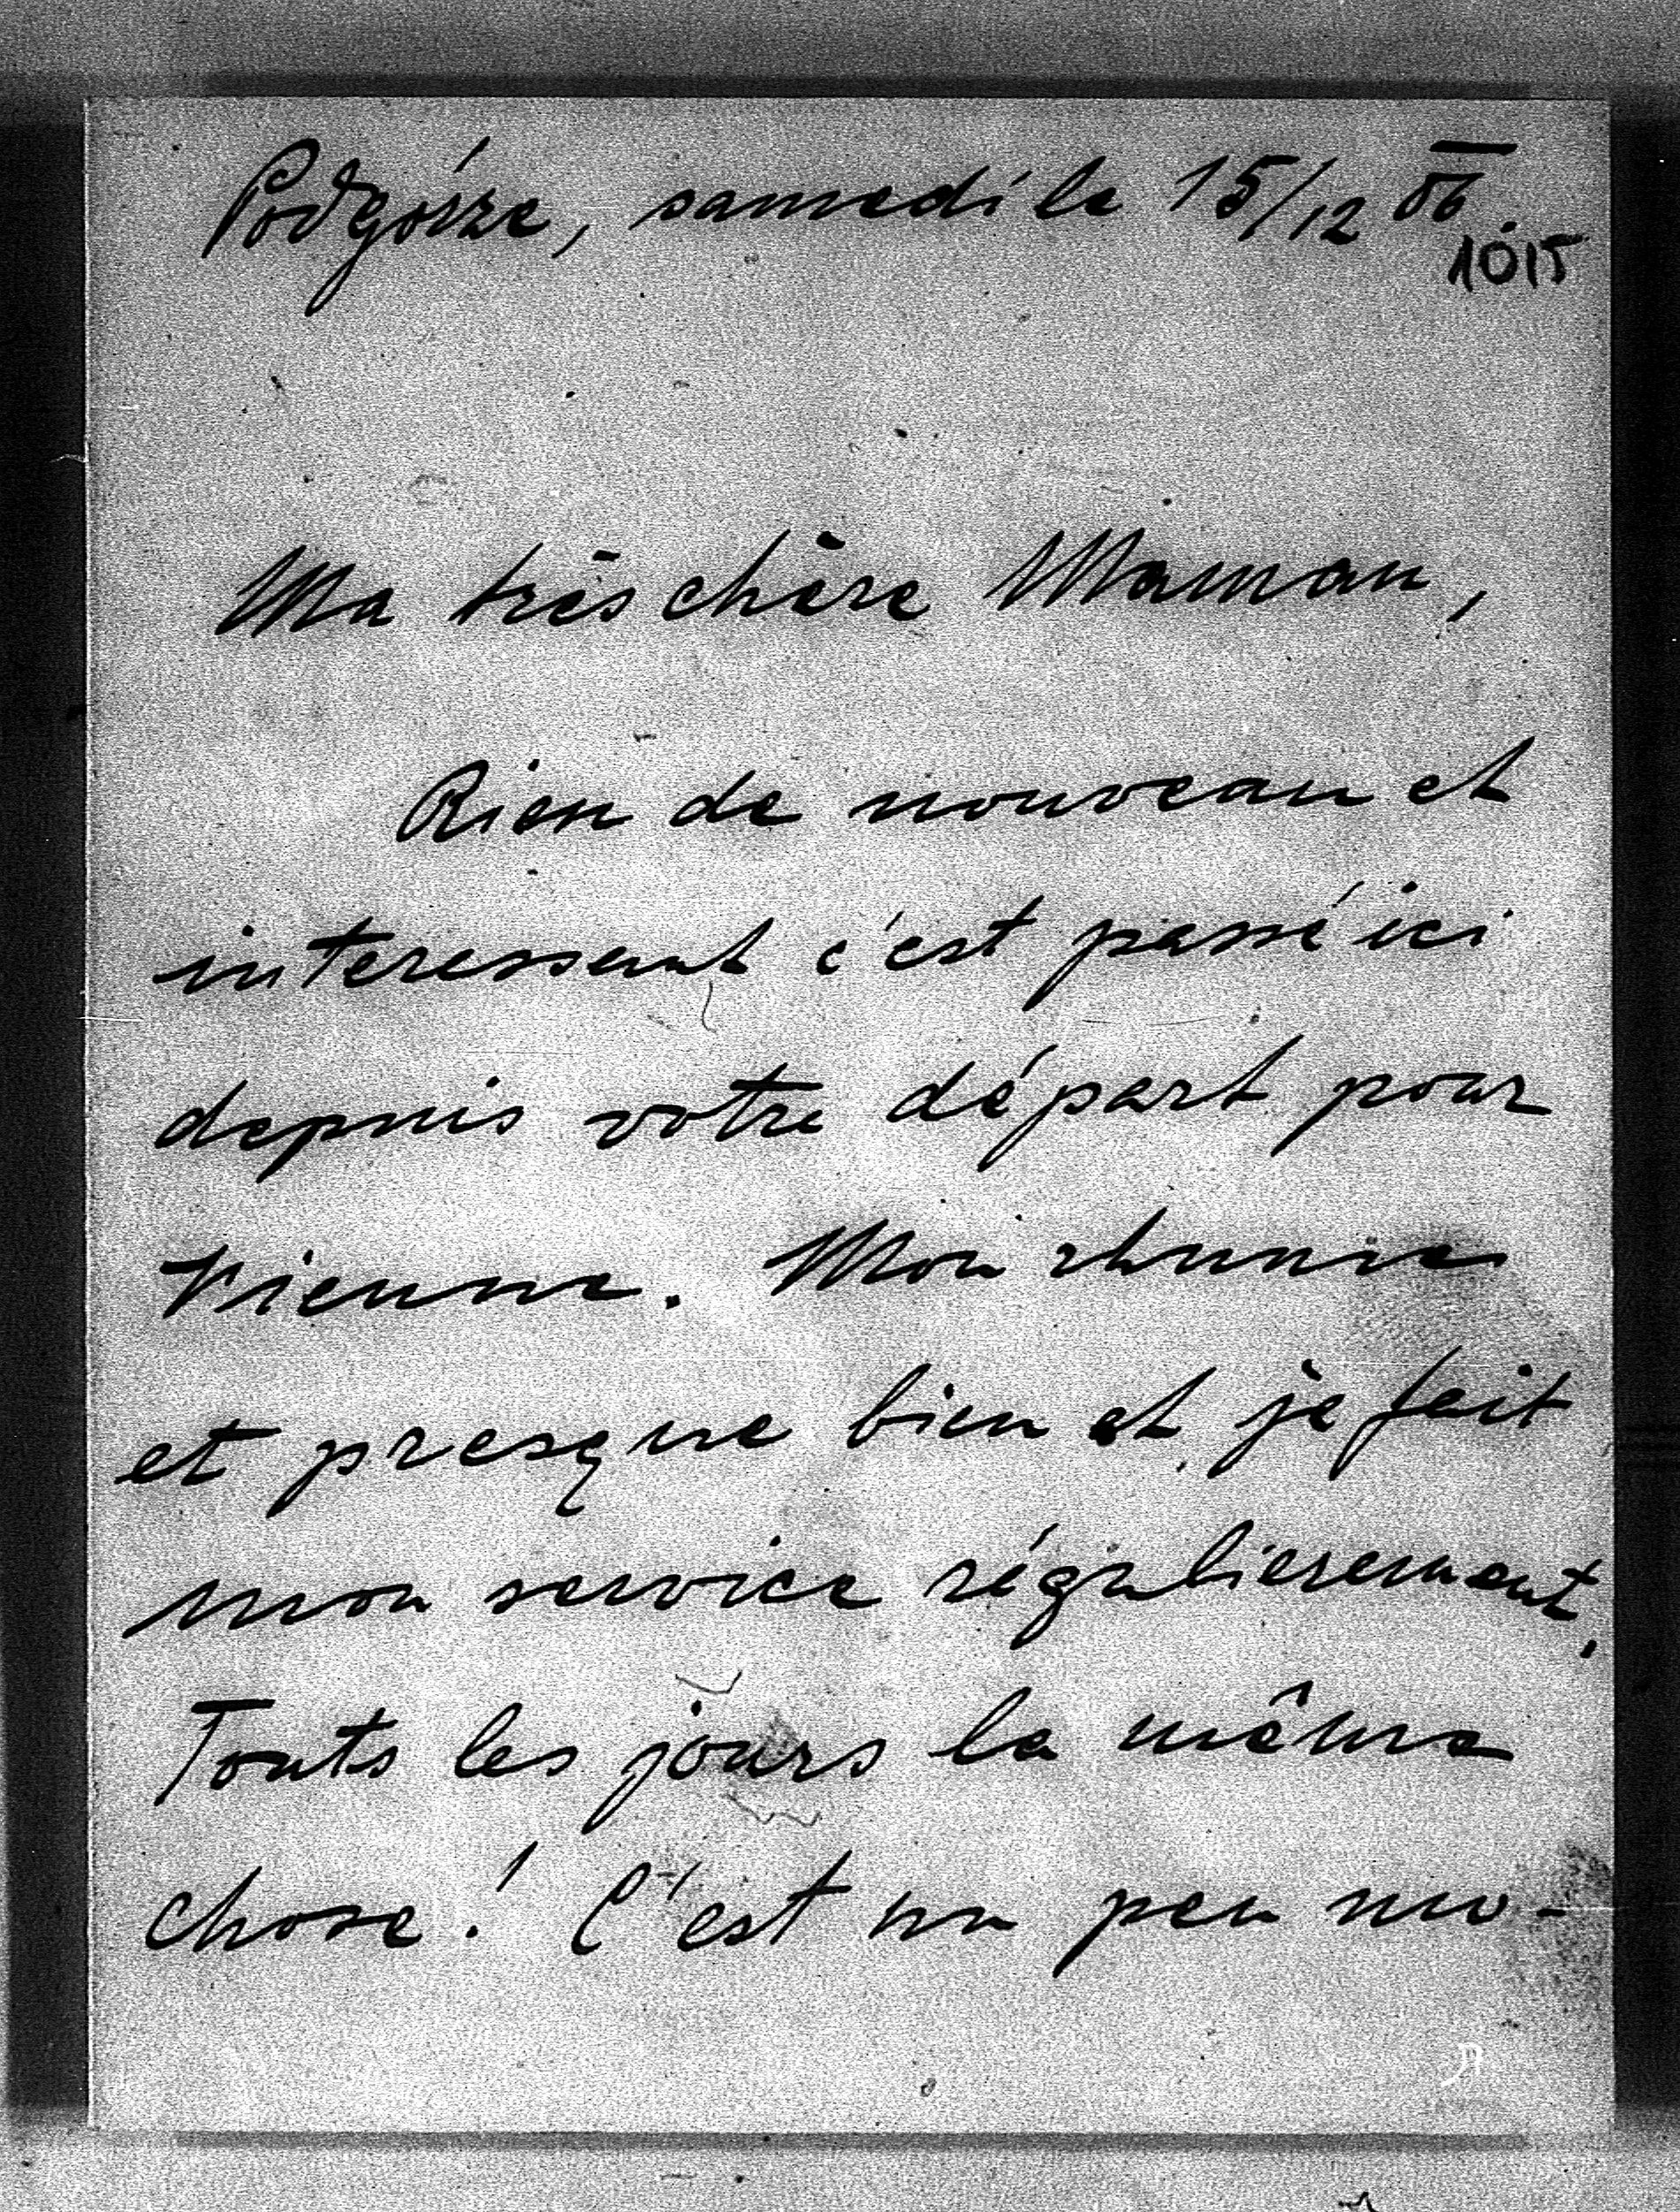 Podgórze, samedi le 15/12 06.
1015
Ma très chère Maman,
Rien de nouveau et
interessant c'est passé ici
depuis votre départ pour
Vienne. Mon rhume
et presque bien et je fait
mon service régulierement.
Touts les jours la même
chose! C'est un peu mo-